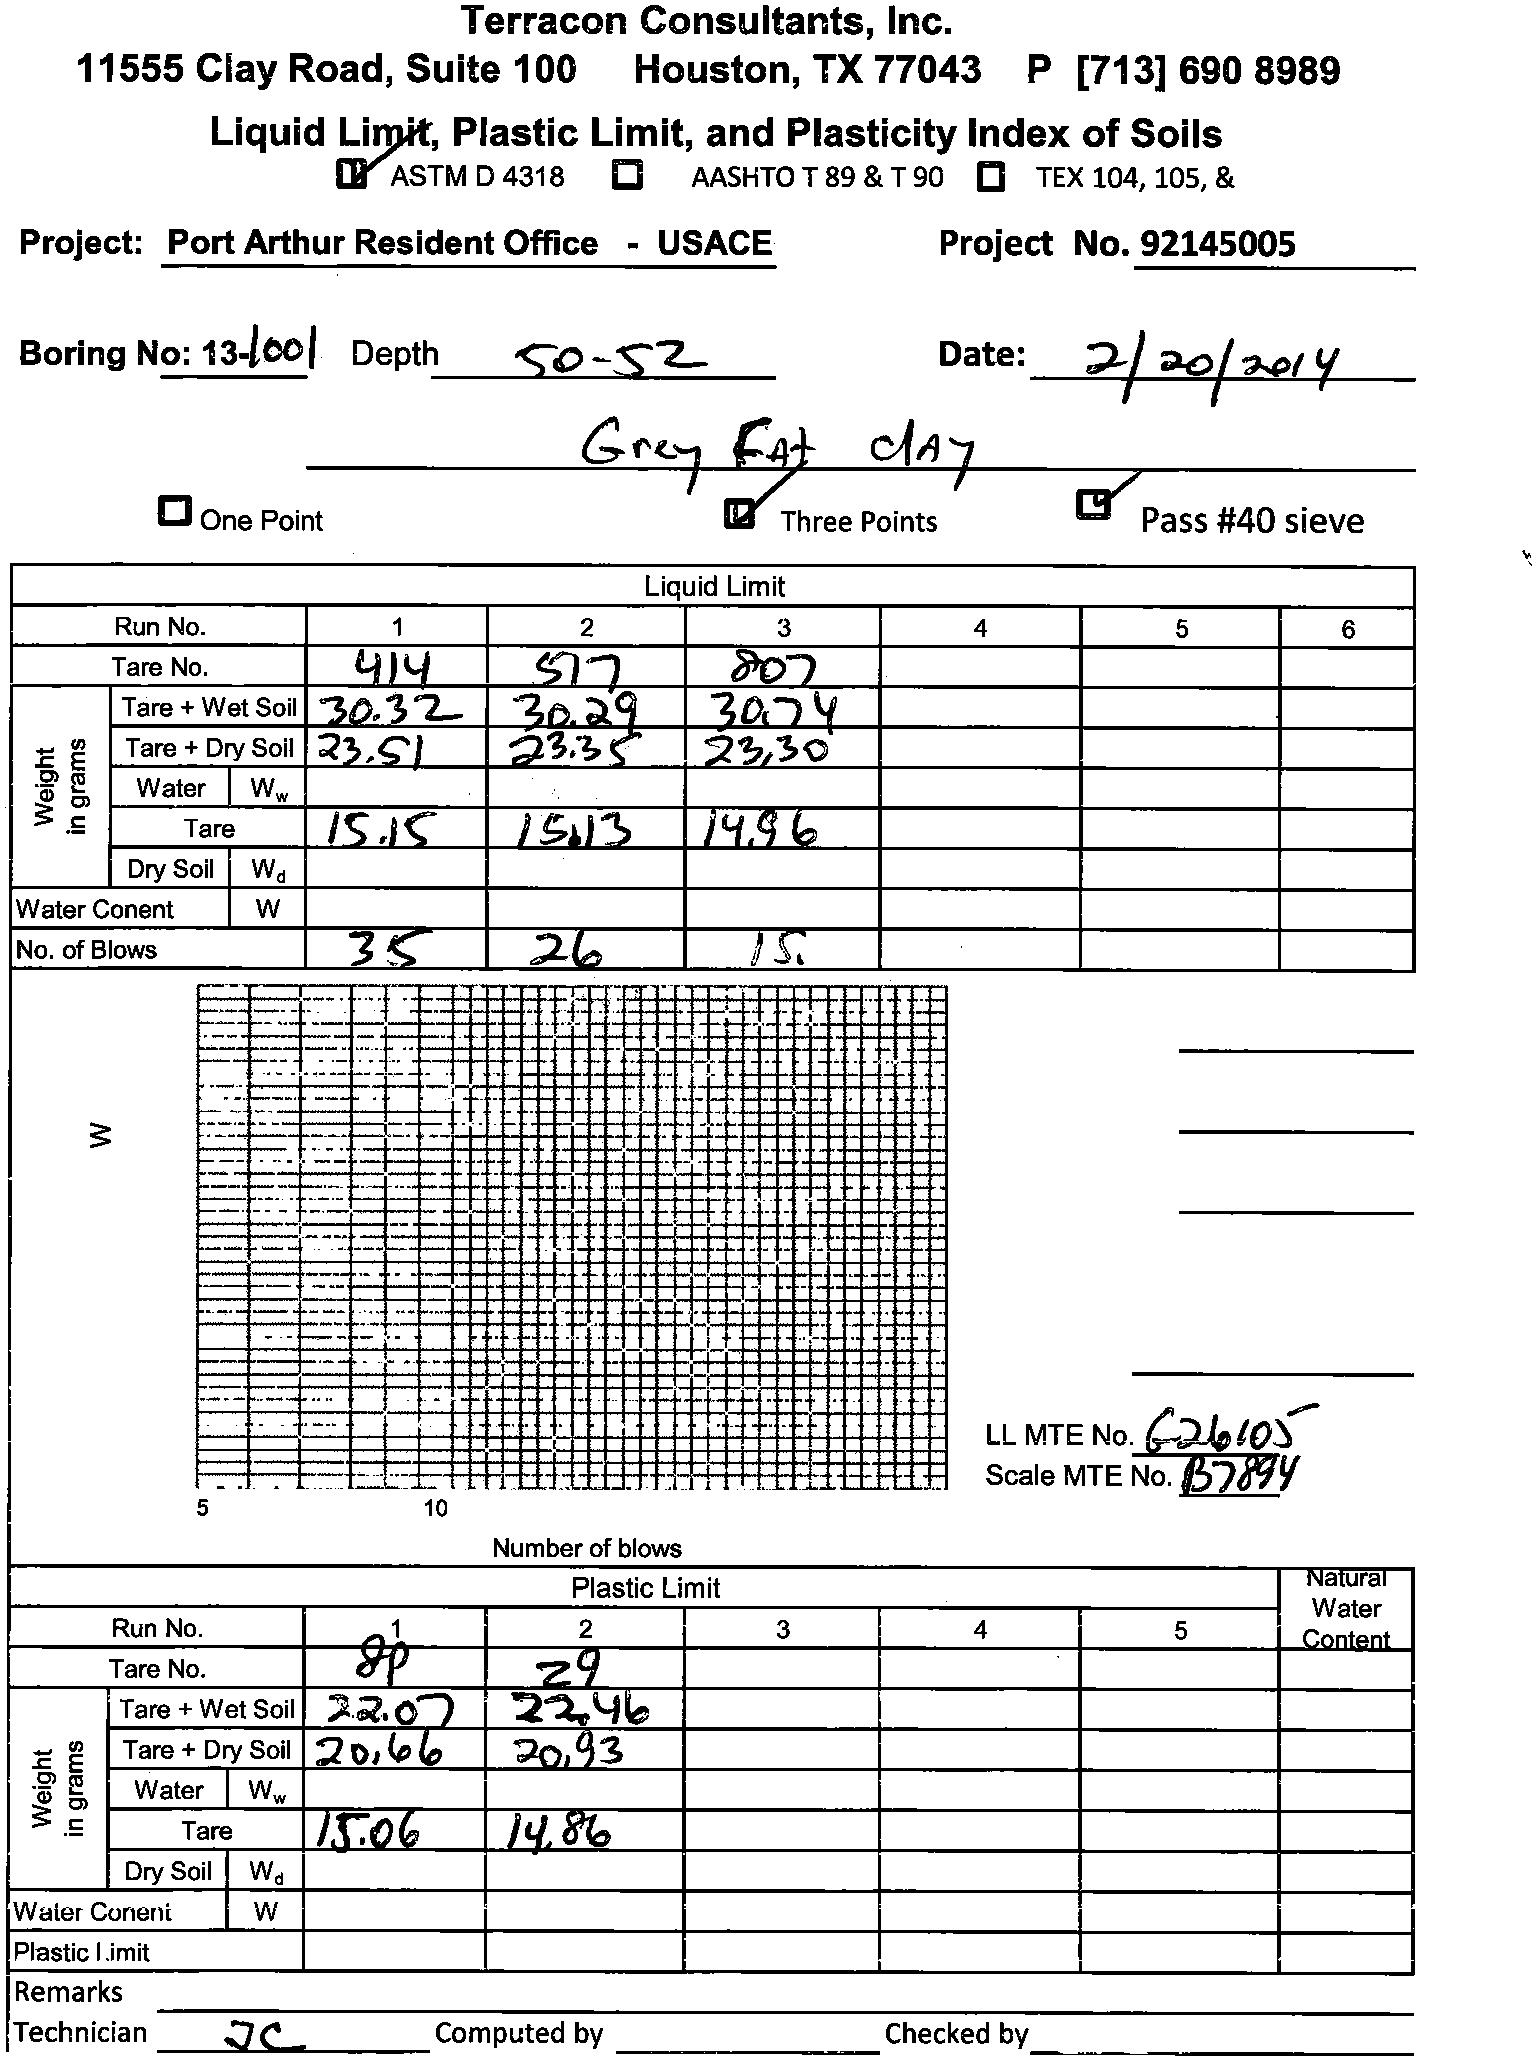 Terracon Consultants, Inc.
11555 Clay Road, Suite 100 Houston, TX 77043 P [713] 690 8989
Liquid Limit, Plastic Limit, and Plasticity Index of Soils
ASTM D 4318 AASHTO T 89 & T 90 TEX 104, 105, &
Project: Port Arthur Resident Office - USACE Project No. 92145005
Boring No: 13-1001 Depth 50-52 Date: 2/20/2014
Grey FAt clAy
One Point Three Points Pass #40 sieve
Liquid Limit
Run No. 1 2 3 4 5 6
Tare No. 414 577 807
Weight in grams
Tare + Wet Soil 30.32 30.29 30.74
Tare + Dry Soil 23.51 23.35 23.30
Water Ww
Tare 15.15 15.13 14.96
Dry Soil Wd
Water Conent W
No. of Blows 35 26 15.
W
LL MTE No. G26105
Scale MTE No. B7894
5 10
Number of blows
Plastic Limit Natural Water Content
Run No. 1 2 3 4 5
Tare No. 8P 29
Weight in grams
Tare + Wet Soil 22.07 22.46
Tare + Dry Soil 20.66 20.93
Water Ww
Tare 15.06 14.86
Dry Soil Wd
Water Conent W
Plastic Limit
Remarks
Technician JC Computed by Checked by